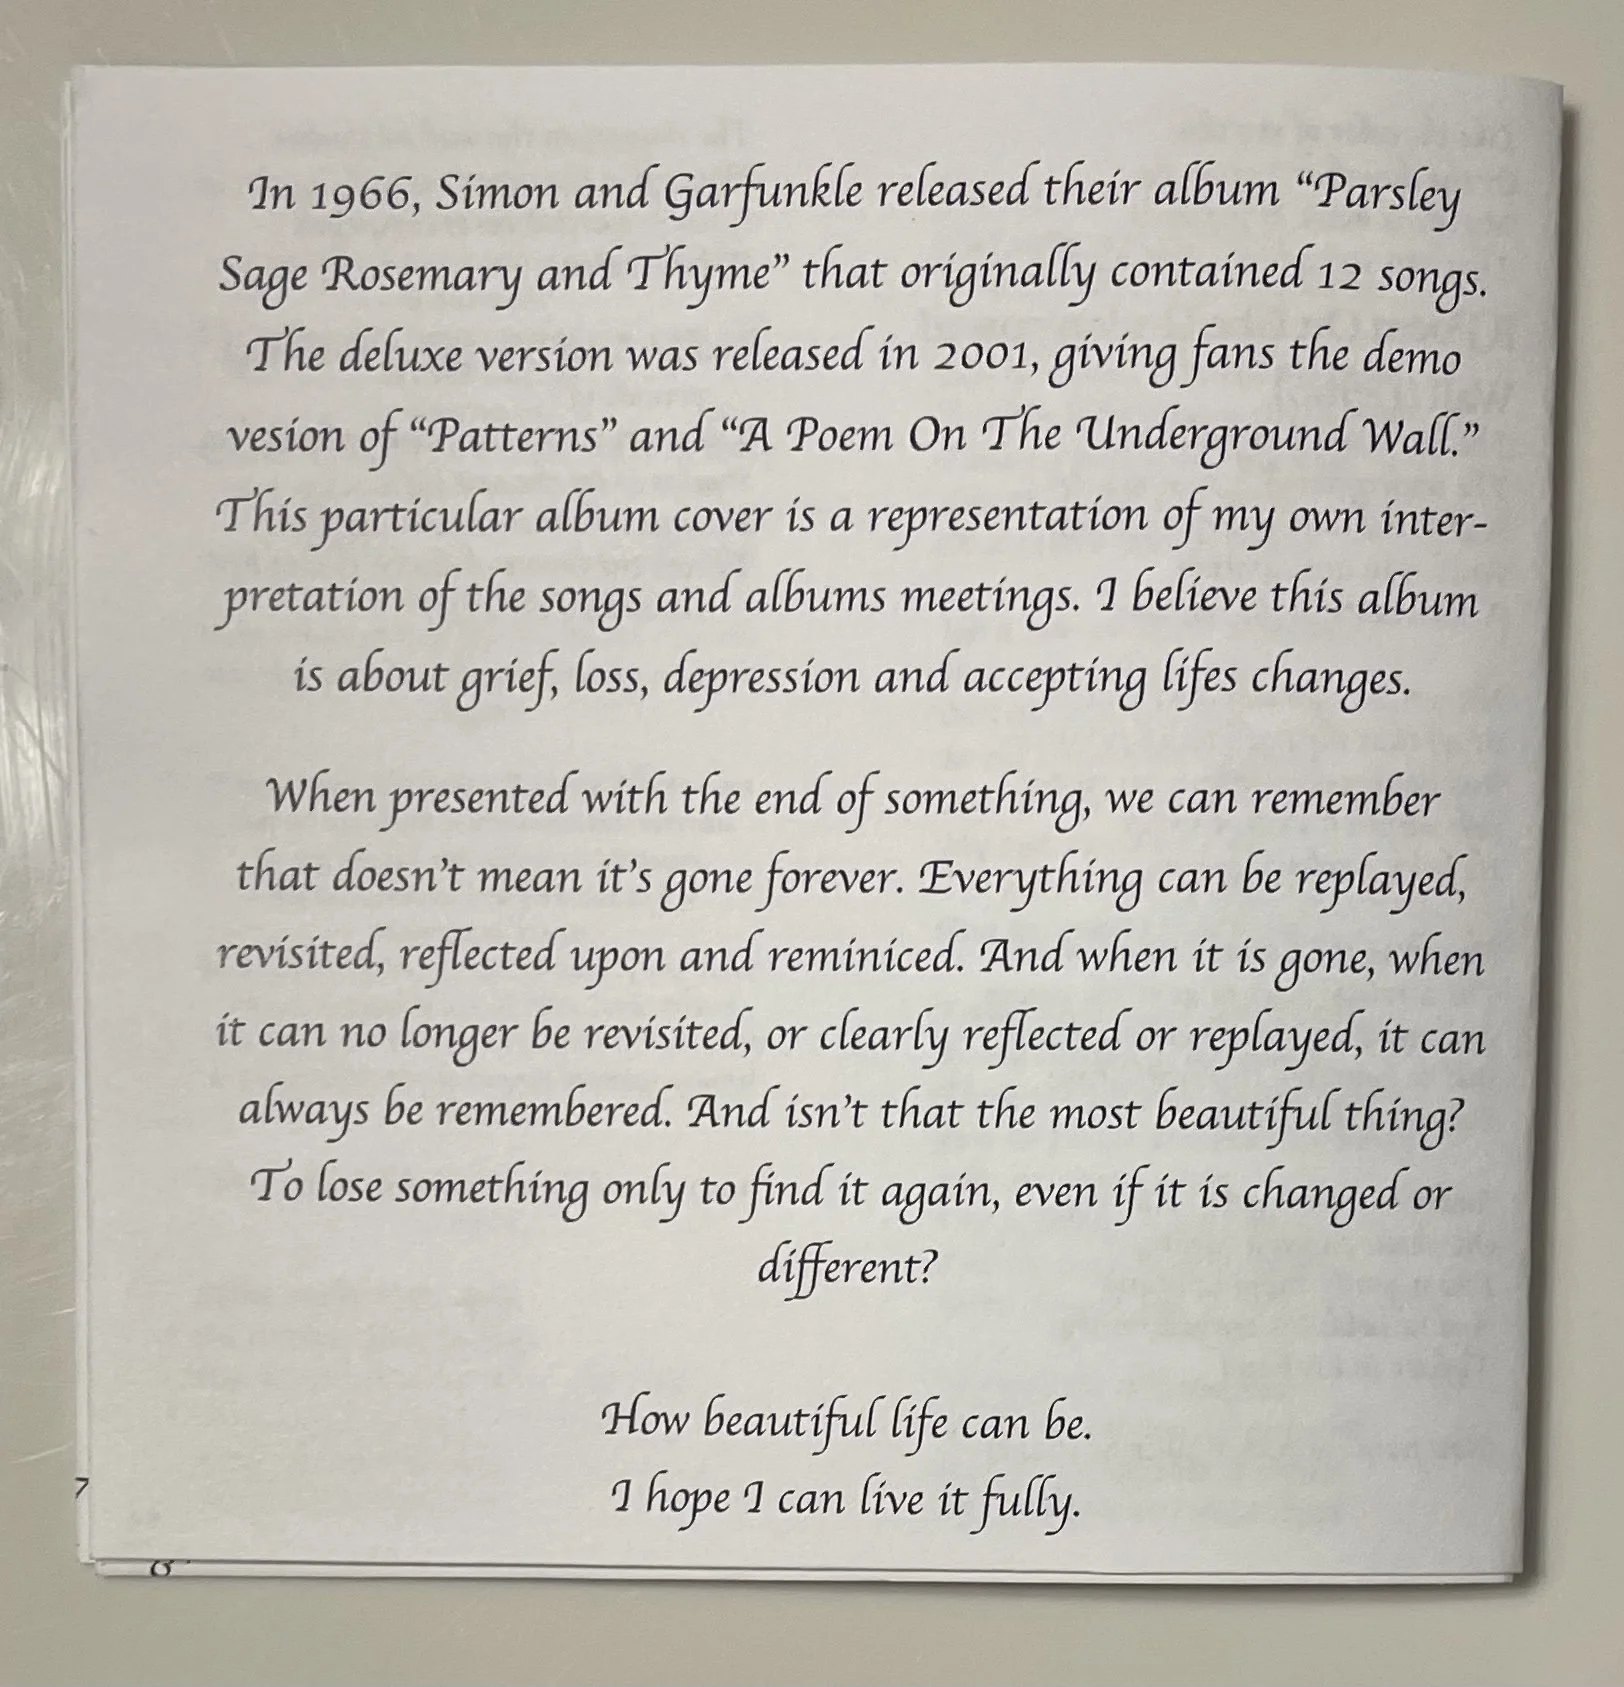 In 1966, Simon and Garfunkle released their album “Parsley
Sage Rosemary and Thyme” that originally contained 12 songs.
The deluxe version was released in 2001, giving fans the demo
vesion of “Patterns” and “A Poem On The Underground Wall.”
This particular album cover is a representation of my own inter-
pretation of the songs and albums meetings. I believe this album
is about grief, loss, depression and accepting lifes changes.
When presented with the end of something, we can remember
that doesn’t mean it’s gone forever. Everything can be replayed,
revisited, reflected upon and reminiced. And when it is gone, when
it can no longer be revisited, or clearly reflected or replayed, it can
always be remembered. And isn’t that the most beautiful thing?
To lose something only to find it again, even if it is changed or
different?
How beautiful life can be.
I hope I can live it fully.
7